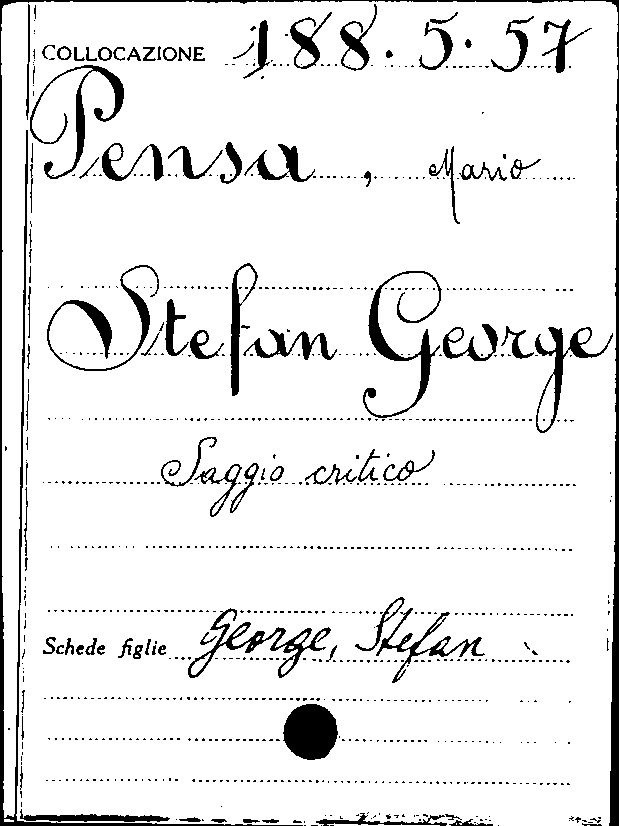 COLLOCAZIONE 188.5.57
Pensa, Mario
Stefan George
Saggio critico
Schede figlie George, Stefan